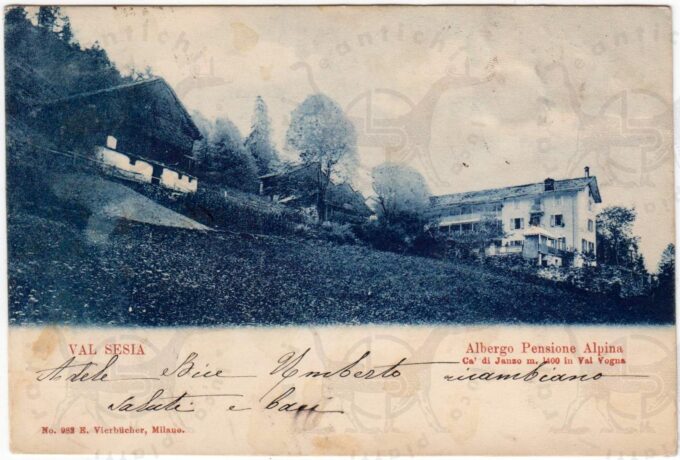 VAL SESIA
Albergo Pensione Alpina
Ca' di Janzo m. 1400 in Val Vogna
Adele Bice Umberto ricambiano
saluti e baci
No. 983 E. Vierbücher, Milano.